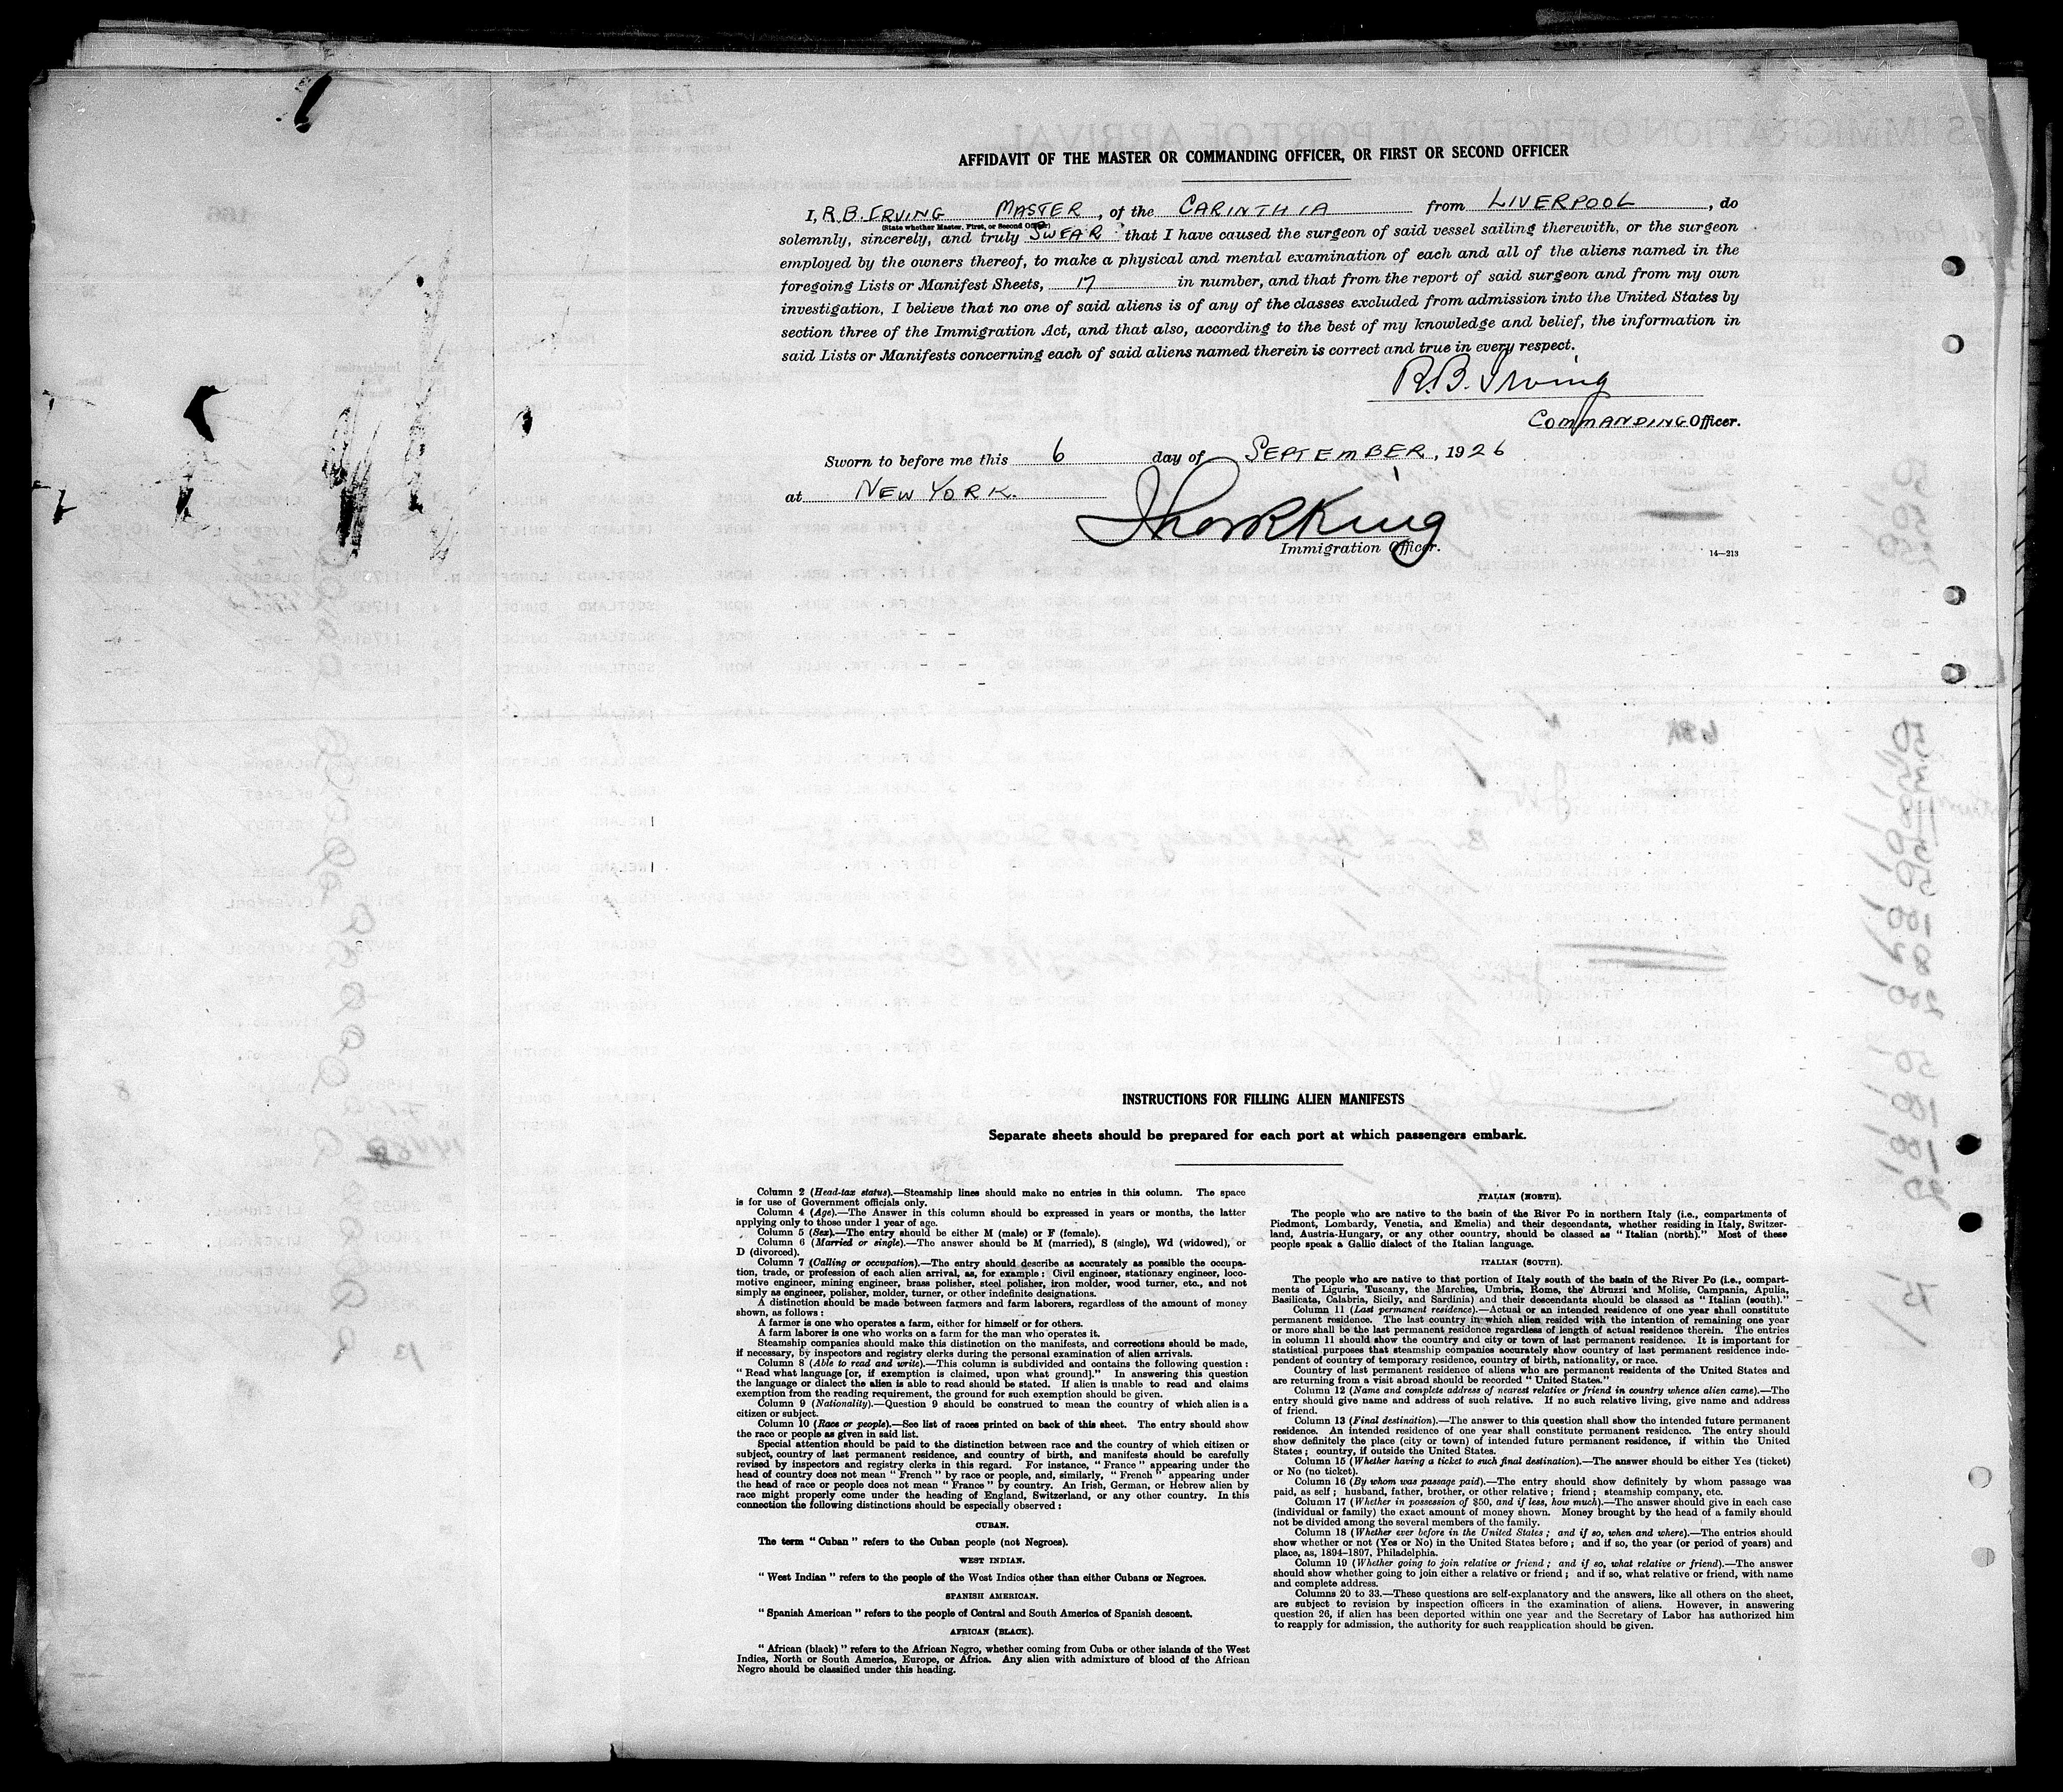 AFFIDAVIT OF THE MASTER OR COMMANDING OFFICER, OR FIRST OR SECOND OFFICER
I, R.B. IRVING MASTER, of the CARINTHIA from LIVERPOOL, do
(State whether Master, First, or Second Officer)
solemnly, sincerely, and truly SWEAR that I have caused the surgeon of said vessel sailing therewith, or the surgeon
employed by the owners thereof, to make a physical and mental examination of each and all of the aliens named in the
foregoing Lists or Manifest Sheets, 17 in number, and that from the report of said surgeon and from my own
investigation, I believe that no one of said aliens is of any of the classes excluded from admission into the United States by
section three of the Immigration Act, and that also, according to the best of my knowledge and belief, the information in
said Lists or Manifests concerning each of said aliens named therein is correct and true in every respect.
R.B. Irving
COMMANDING Officer.
Sworn to before me this 6 day of SEPTEMBER, 1926
at NEW YORK.
King
Immigration Officer.
14—213
INSTRUCTIONS FOR FILLING ALIEN MANIFESTS
Separate sheets should be prepared for each port at which passengers embark.
Column 2 (Head-tax status).—Steamship lines should make no entries in this column. The space
is for use of Government officials only.
Column 4 (Age).—The Answer in this column should be expressed in years or months, the latter
applying only to those under 1 year of age.
Column 5 (Sex).—The entry should be either M (male) or F (female).
Column 6 (Married or single).—The answer should be M (married), S (single), Wd (widowed), or
D (divorced).
Column 7 (Calling or occupation).—The entry should describe as accurately as possible the occupa-
tion, trade, or profession of each alien arrival, as, for example: Civil engineer, stationary engineer, loco-
motive engineer, mining engineer, brass polisher, steel polisher, iron molder, wood turner, etc., and not
simply as engineer, polisher, molder, turner, or other indefinite designations.
A distinction should be made between farmers and farm laborers, regardless of the amount of money
shown, as follows:
A farmer is one who operates a farm, either for himself or for others.
A farm laborer is one who works on a farm for the man who operates it.
Steamship companies should make this distinction on the manifests, and corrections should be made,
if necessary, by inspectors and registry clerks during the personal examination of alien arrivals.
Column 8 (Able to read and write).—This column is subdivided and contains the following question:
"Read what language [or, if exemption is claimed, upon what ground]." In answering this question
the language or dialect the alien is able to read should be stated. If alien is unable to read and claims
exemption from the reading requirement, the ground for such exemption should be given.
Column 9 (Nationality).—Question 9 should be construed to mean the country of which alien is a
citizen or subject.
Column 10 (Race or people).—See list of races printed on back of this sheet. The entry should show
the race or people as given in said list.
Special attention should be paid to the distinction between race and the country of which citizen or
subject, country of last permanent residence, and country of birth, and manifests should be carefully
revised by inspectors and registry clerks in this regard. For instance, "France" appearing under the
head of country does not mean "French" by race or people, and, similarly, "French" appearing under
the head of race or people does not mean "France" by country. An Irish, German, or Hebrew alien by
race might properly come under the heading of England, Switzerland, or any other country. In this
connection the following distinctions should be especially observed:
CUBAN.
The term "Cuban" refers to the Cuban people (not Negroes).
WEST INDIAN.
"West Indian" refers to the people of the West Indies other than either Cubans or Negroes.
SPANISH AMERICAN.
"Spanish American" refers to the people of Central and South America of Spanish descent.
AFRICAN (BLACK).
"African (black)" refers to the African Negro, whether coming from Cuba or other islands of the West
Indies, North or South America, Europe, or Africa. Any alien with admixture of blood of the African
Negro should be classified under this heading.
ITALIAN (NORTH).
The people who are native to the basin of the River Po in northern Italy (i.e., compartments of
Piedmont, Lombardy, Venetia, and Emelia) and their descendants, whether residing in Italy, Switzer-
land, Austria-Hungary, or any other country, should be classed as "Italian (north)." Most of these
people speak a Gallic dialect of the Italian language.
ITALIAN (SOUTH).
The people who are native to that portion of Italy south of the basin of the River Po (i.e., compart-
ments of Liguria, Tuscany, the Marches, Umbria, Rome, the Abruzzi and Molise, Campania, Apulia,
Basilicata, Calabria, Sicily, and Sardinia) and their descendants should be classed as "Italian (south)."
Column 11 (Last permanent residence).—Actual or an intended residence of one year shall constitute
permanent residence. The last country in which alien resided with the intention of remaining one year
or more shall be the last permanent residence regardless of length of actual residence therein. The entries
in column 11 should show the country and city or town of last permanent residence. It is important for
statistical purposes that steamship companies accurately show country of last permanent residence inde-
pendent of country of temporary residence, country of birth, nationality, or race.
Country of last permanent residence of aliens who are permanent residents of the United States and
are returning from a visit abroad should be recorded "United States."
Column 12 (Name and complete address of nearest relative or friend in country whence alien came).—The
entry should give name and address of such relative. If no such relative living, give name and address
of friend.
Column 13 (Final destination).—The answer to this question shall show the intended future permanent
residence. An intended residence of one year shall constitute permanent residence. The entry should
show definitely the place (city or town) of intended future permanent residence, if within the United
States; country, if outside the United States.
Column 15 (Whether having a ticket to such final destination).—The answer should be either Yes (ticket)
or No (no ticket).
Column 16 (By whom was passage paid).—The entry should show definitely by whom passage was
paid, as self; husband, father, brother, or other relative; friend; steamship company, etc.
Column 17 (Whether in possession of $50, and if less, how much).—The answer should give in each case
(individual or family) the exact amount of money shown. Money brought by the head of a family should
not be divided among the several members of the family.
Column 18 (Whether ever before in the United States; and if so, when and where).—The entries should
show whether or not (Yes or No) in the United States before; and if so, the year (or period of years) and
place, as, 1894–1897, Philadelphia.
Column 19 (Whether going to join relative or friend; and if so, what relative or friend).—The answer
should show whether going to join either a relative or friend; and if so, what relative or friend, with name
and complete address.
Columns 20 to 33.—These questions are self-explanatory and the answers, like all others on the sheet,
are subject to revision by inspection officers in the examination of aliens. However, in answering
question 26, if alien has been deported within one year and the Secretary of Labor has authorized him
to reapply for admission, the authority for such reapplication should be given.